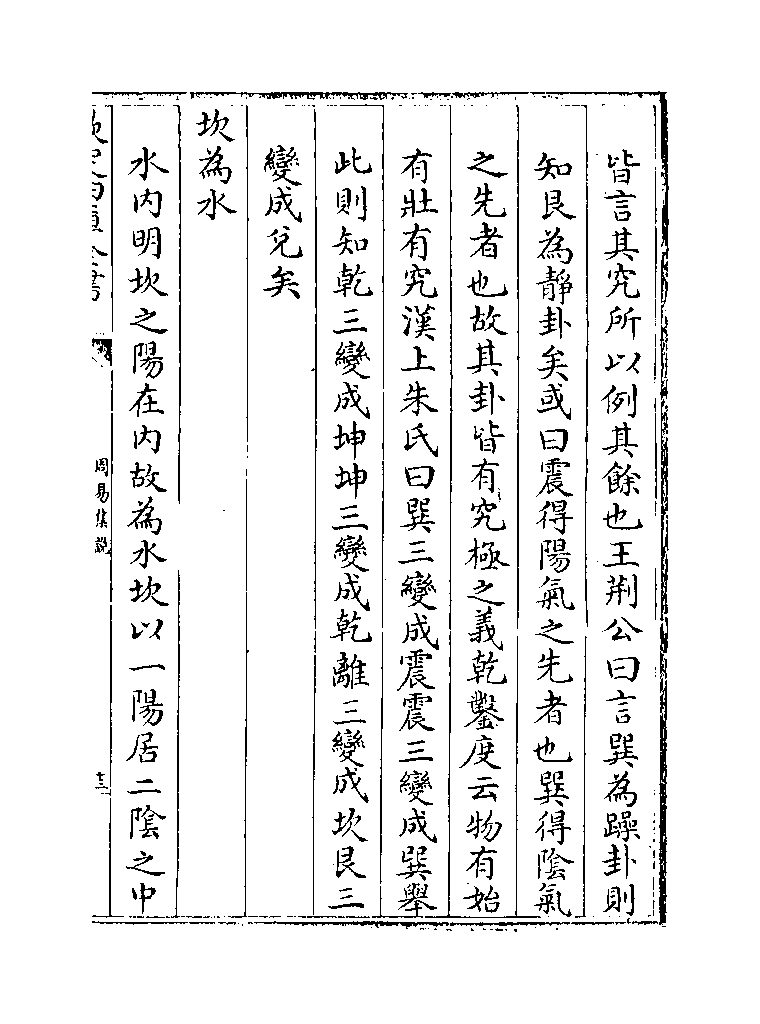 皆言其究所以例其餘也王荆公曰言巽為躁卦則
知艮為静卦矣或曰震得陽氣之先者也巽得陰氣
之先者也故其卦皆有究極之義乾鑿度云物有始
有壯有究漢上朱氏曰巽三變成震震三變成巽舉
此則知乾三變成坤坤三變成乾離三變成坎艮三
變成兌矣
坎為水
水内明坎之陽在内故為水坎以一陽居二陰之中
周易集說
十三